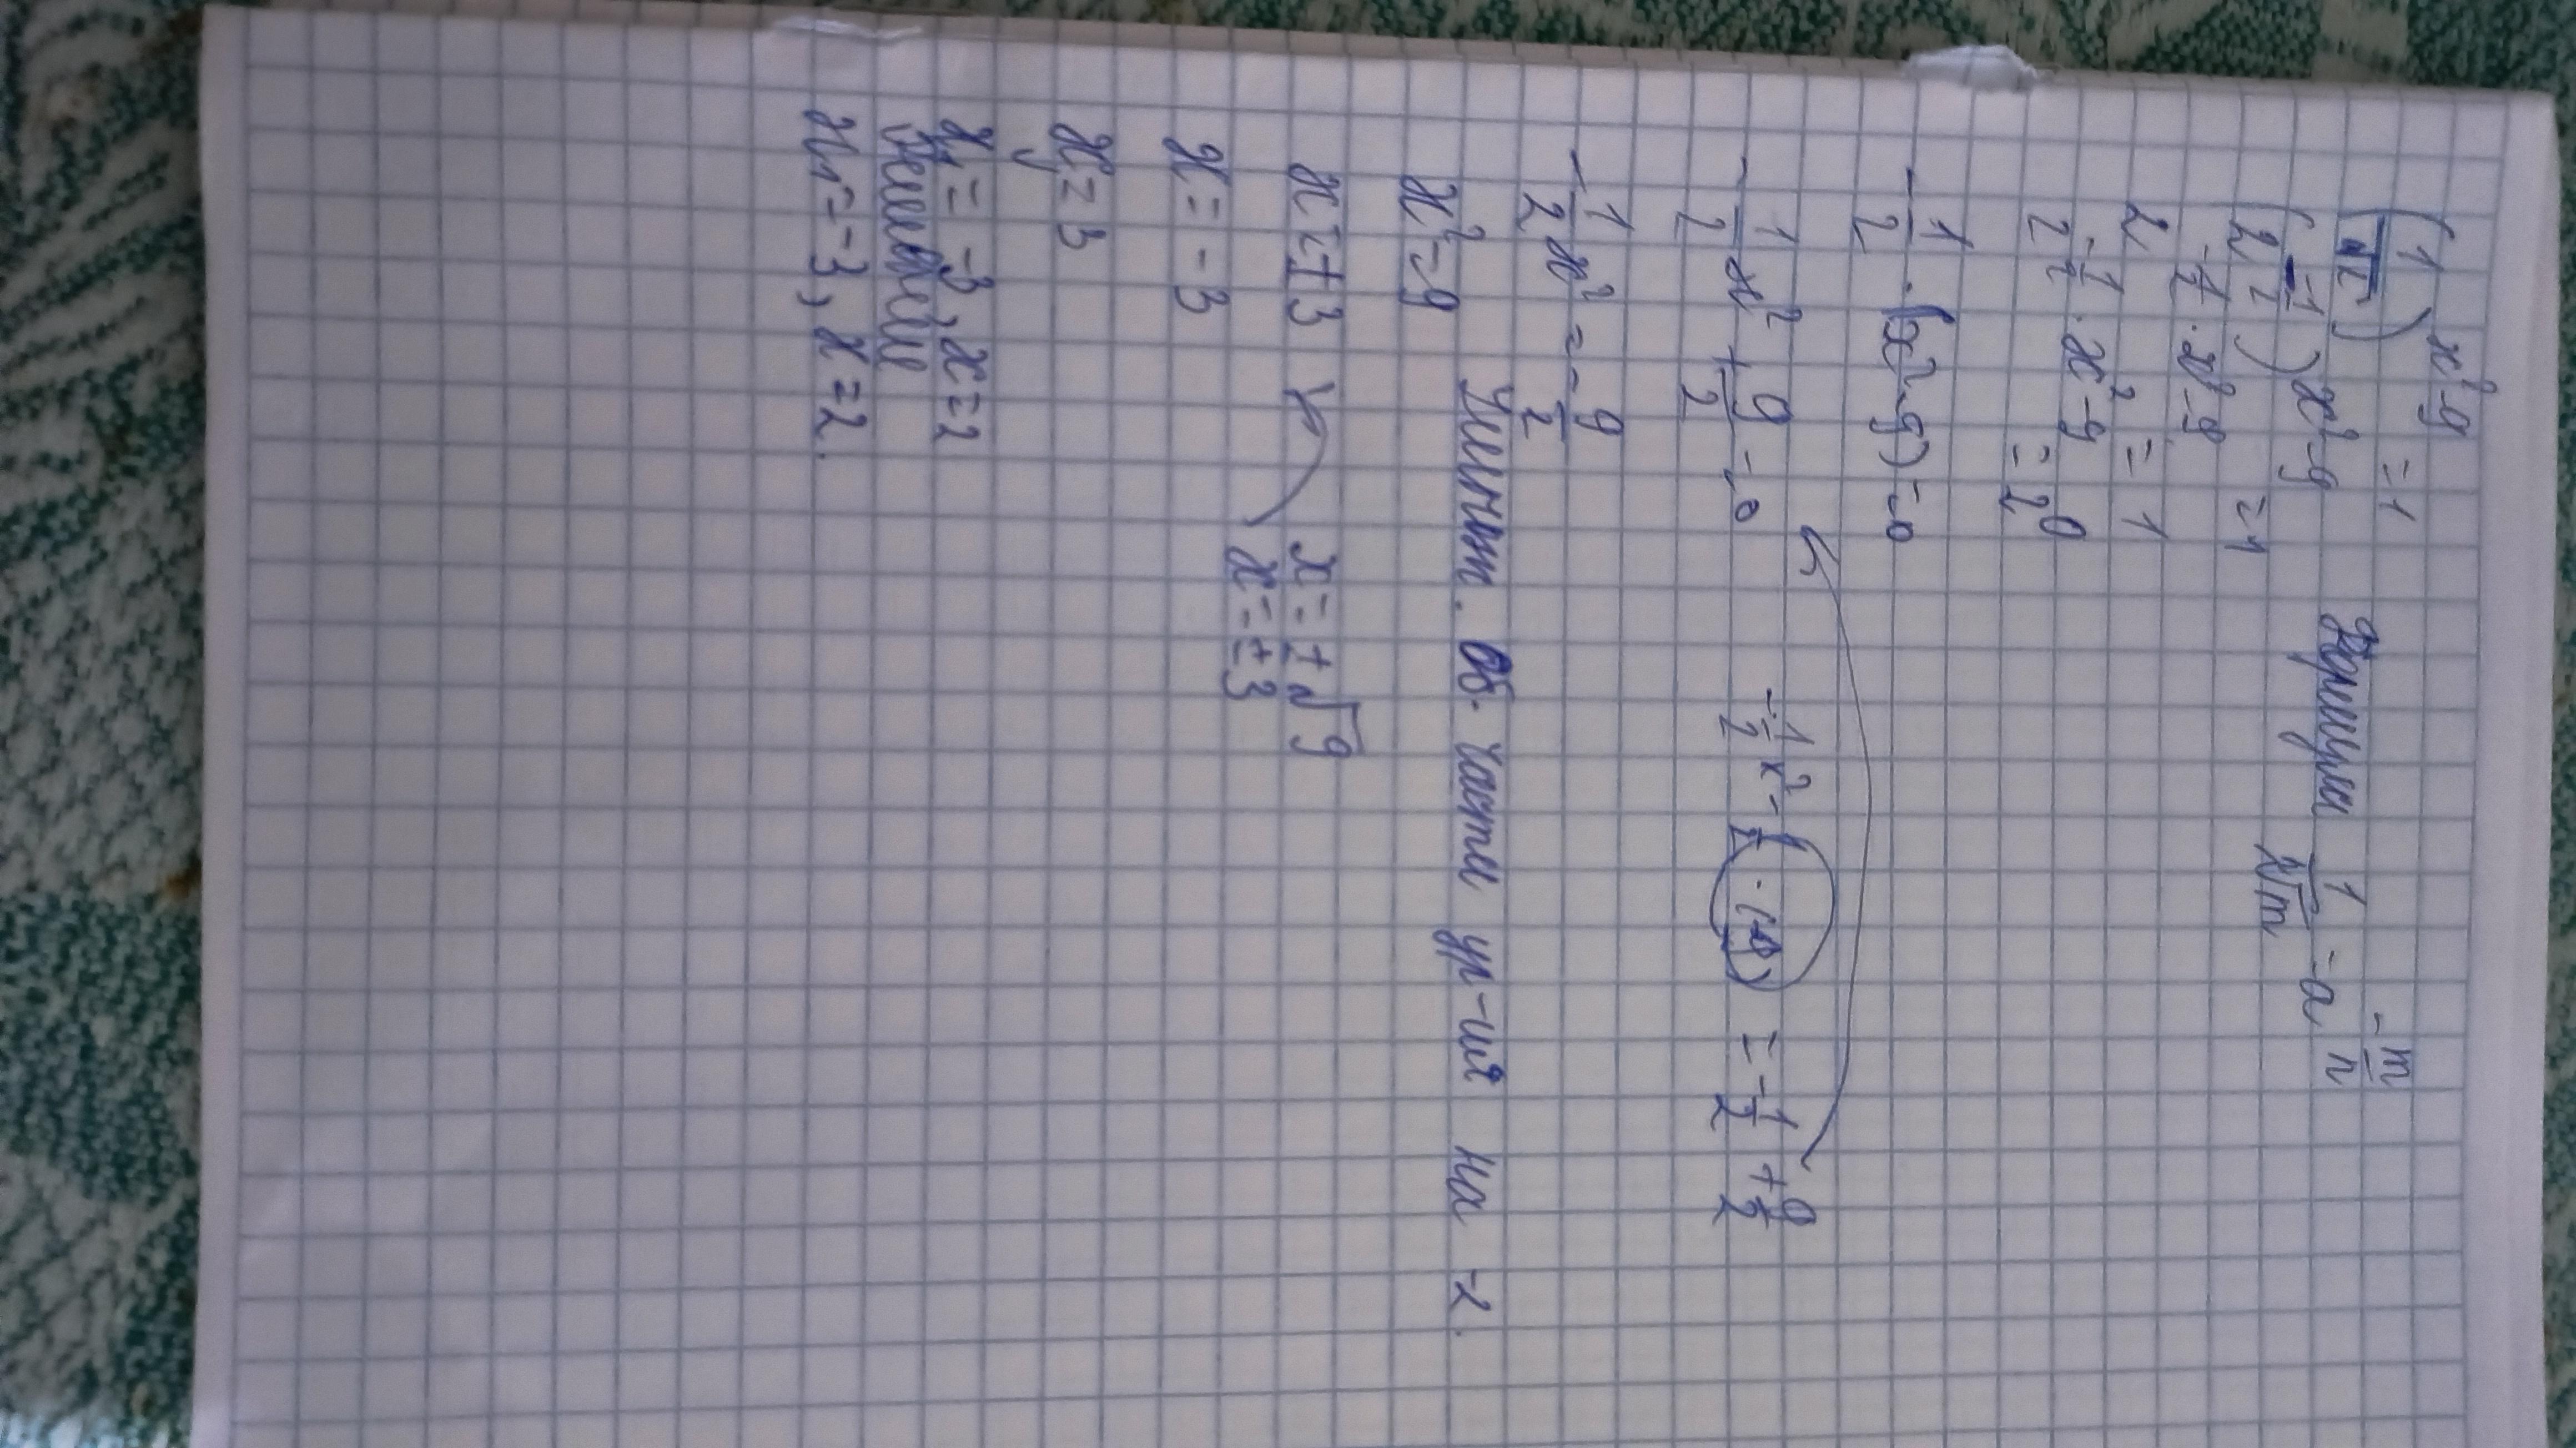 (1/√2)^x²-9 = 1
(2^-1/2)^x²-9 = 1
Формулы 1/ⁿ√m = a^-m/n
2^-1/2·x²-9 = 1
2^-1/2·x²-9 = 2^0
-1/2·(x²-9)=0
-1/2x²+9/2=0
-1/2x²-1/2·(-9) = -1/2+9/2
-1/2x²=-9/2
Умножит. об. части ур-ия на -2.
x²=9
x=±3
x=±√9
x=±3
x=-3
x=3
x₁=-3, x=2
решение
x₁=-3, x=2.